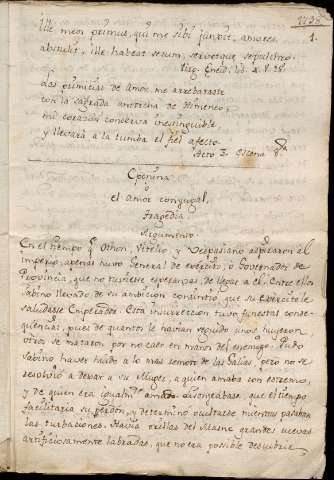 1798
1.
Ille meos primus, qui me sibi junxit, amores
abstulit, ille habeat secum, servetque sepulchro.
Virg. Eneid. Lib. 4. v. 28.
Las primicias de Amor me arrebataste
con la sagrada antorcha de Himeneo;
mi corazón conserva inextinguible
y llevará a la tumba el fiel afecto.
Acto 3. Escena 8.ª
Eponina
o
el amor conyugal,
Tragedia
Argumento
En el tiempo q Othon, Vitelio, y Vespasiano aspiraron al
imperio, apenas huvo General de exército, o Governador de
Provincia, que no tuviese esperanzas de llegar a él. Entre ellos
Sabino llevado de su ambicion consintió que su Exercito le
saludase Emperador. Esta insurreccion tuvo funestas conse-
qüencias, pues de quantos le havian seguido unos huyeron
otros se mataron por no caer en manos del enemigo. Pudo
Sabino haver huido a lo mas remoto de las Galias, pero no se
resolvió a dexar a su Muger, a quien amaba con extremo,
y de quien era igualm.te amado. Lisongeábase, que el tiempo
facilitaria su perdon, y determinó ocultarse mientras pasaban
las turbaciones. Havía orillas del Marne grandes cuevas
artificiosamente labradas, que no era posible descubrir